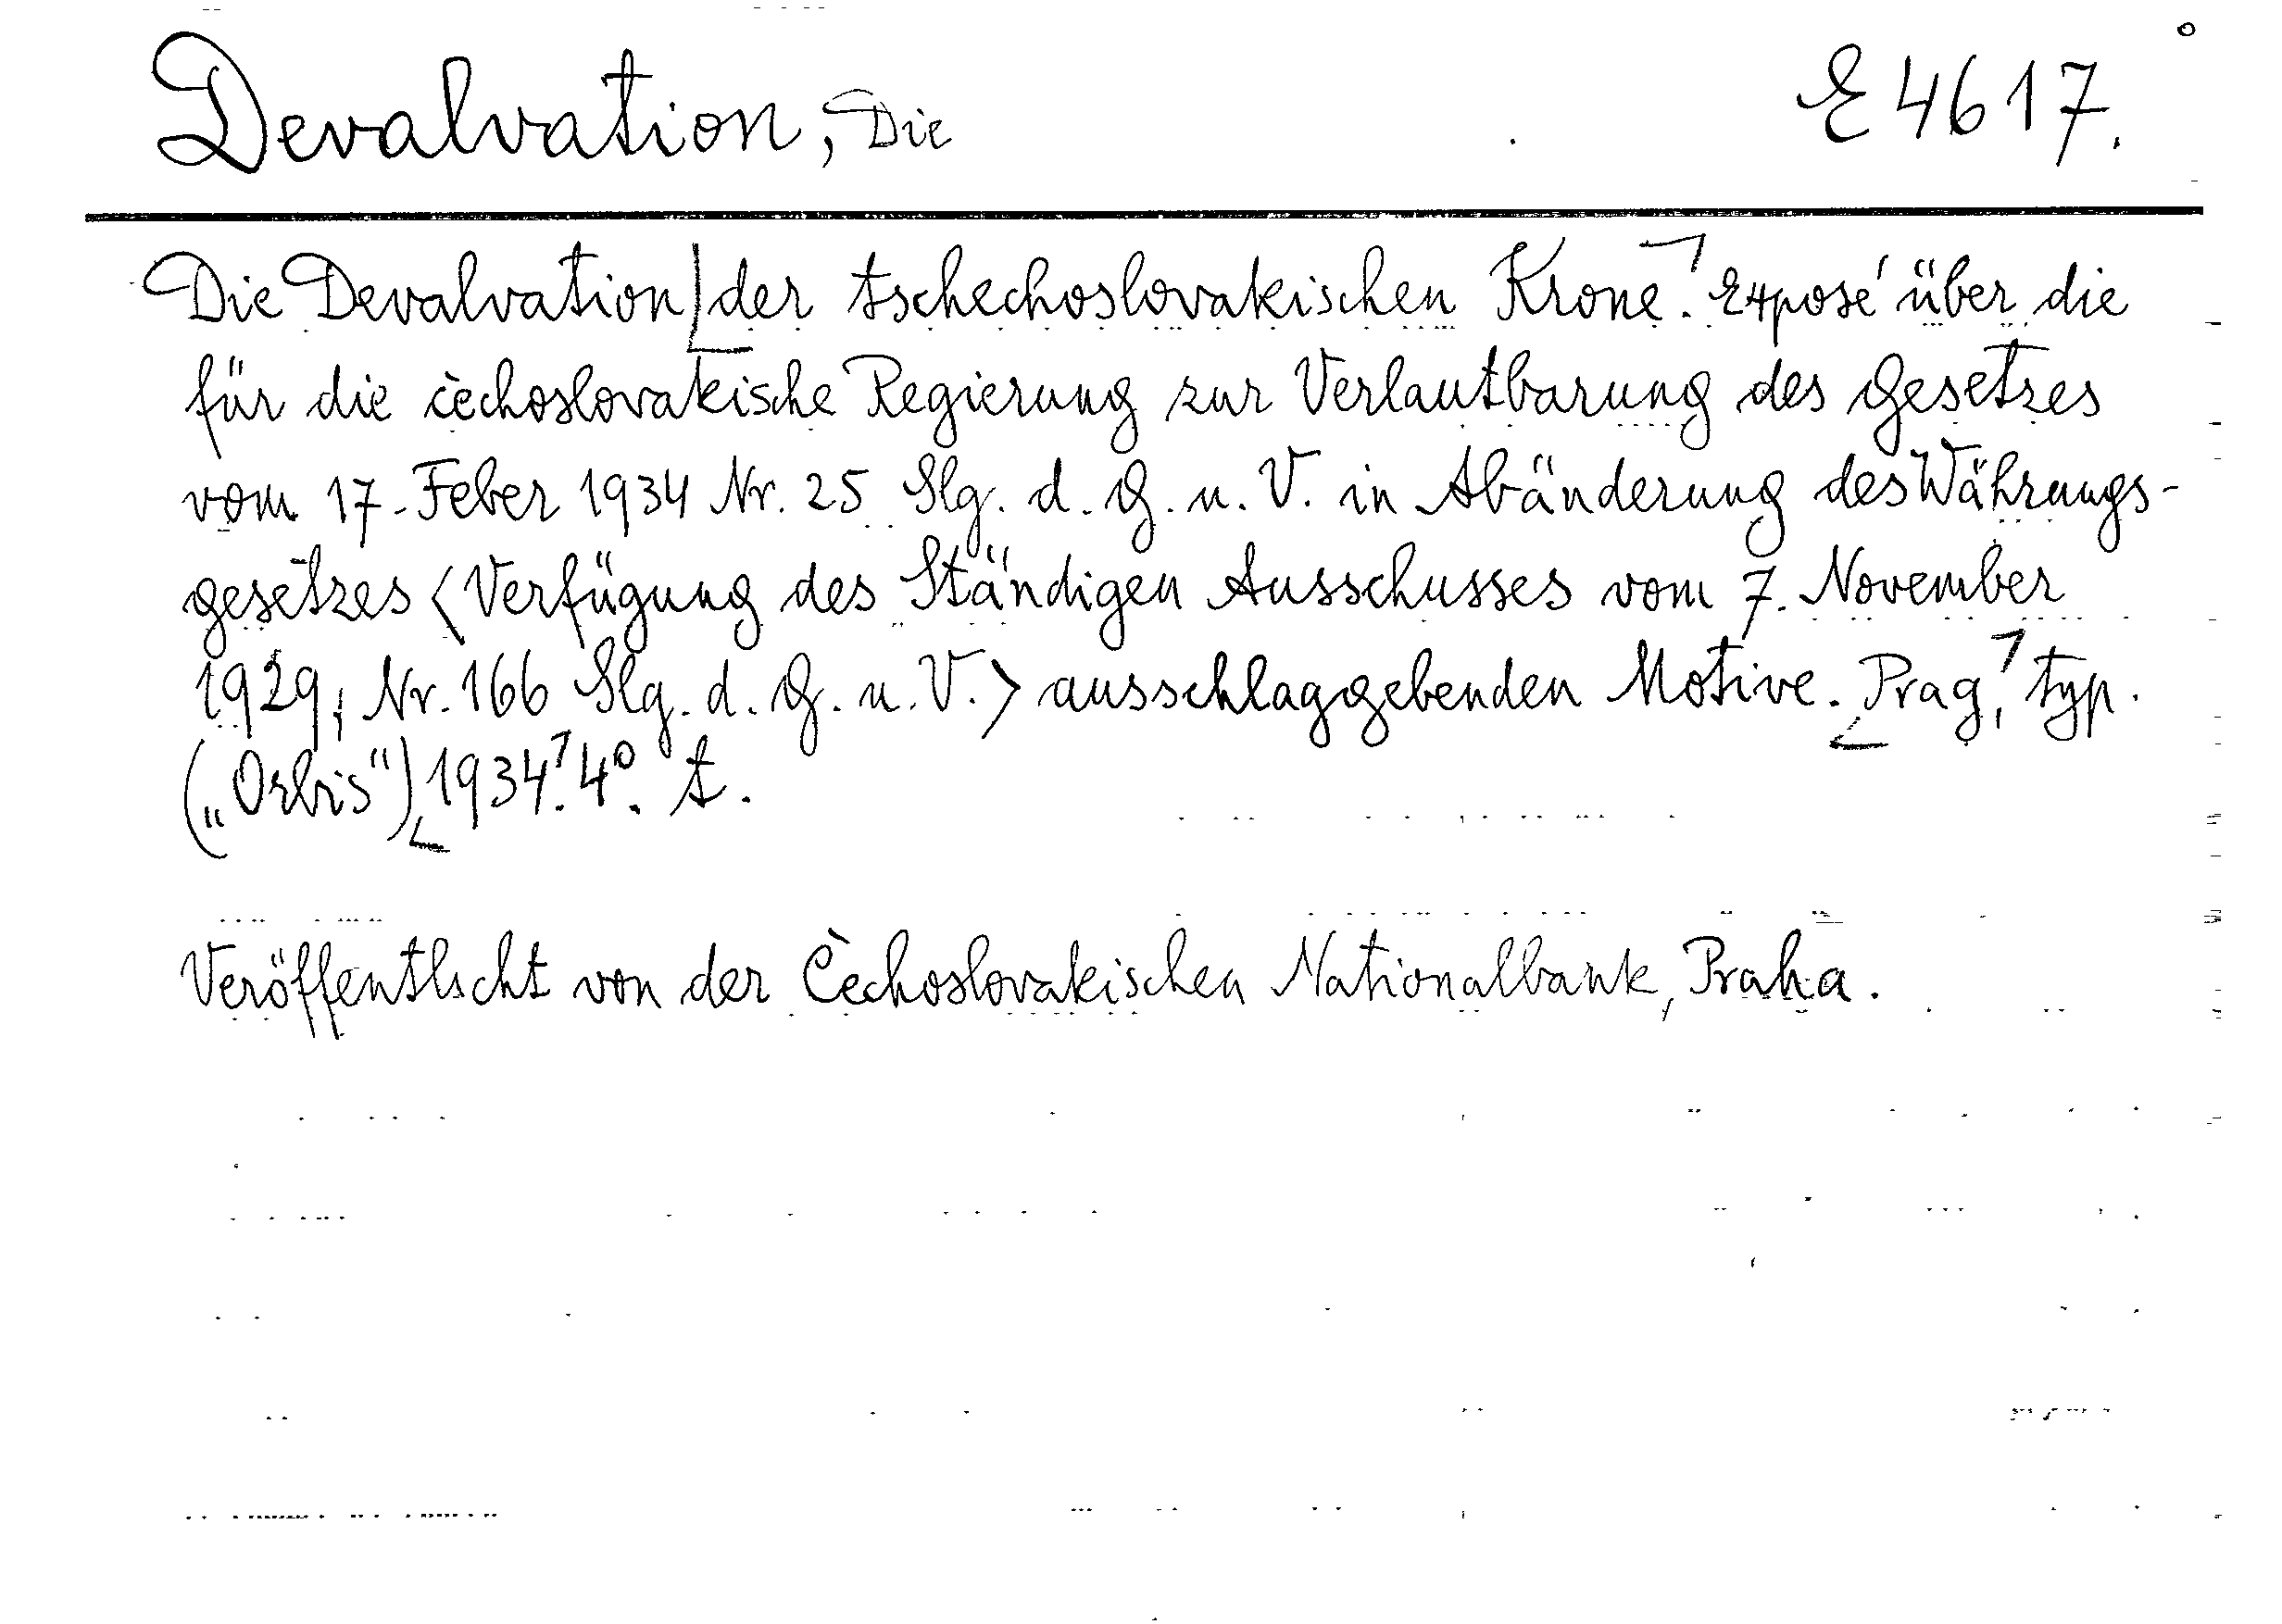 Devalvation, Die E 4617.
Die Devalvation der tschechoslovakischen Krone. Exposé über die
für die čechoslovakische Regierung zur Verlautbarung des Gesetzes
vom 17. Feber 1934 Nr. 25 Slg. d. G. u. V. in Abänderung des Währungs-
gesetzes <Verfügung des Ständigen Ausschusses vom 7. November
1929, Nr. 166 Slg. d. G. u. V.> ausschlaggebenden Motive. Prag, typ.
(„Orbis“) 1934. 4°. t.
Veröffentlicht von der Čechoslovakischen Nationalbank, Praha.